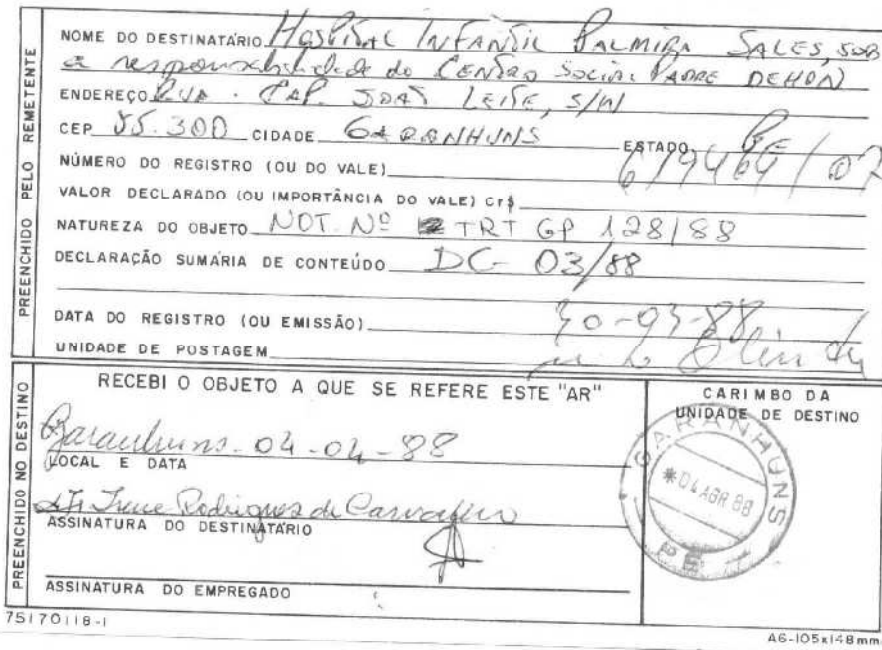 PREENCHIDO PELO REMETENTE
NOME DO DESTINATÁRIO Hospital INFANTIL PALMIRA SALES, SOB
a responsabilidade do CENTRO Social PADRE DEHON
ENDEREÇO RUA. CAP. JOÃO LEITE, S/N
CEP 55.300 CIDADE GARANHUNS ESTADO PE
NÚMERO DO REGISTRO (OU DO VALE) 619464/07
VALOR DECLARADO (OU IMPORTÂNCIA DO VALE) Cr$
NATUREZA DO OBJETO NOT. Nº TRT GP 128/88
DECLARAÇÃO SUMÁRIA DE CONTEÚDO DC 03/88
DATA DO REGISTRO (OU EMISSÃO) 30-03-88
UNIDADE DE POSTAGEM
PREENCHIDO NO DESTINO
RECEBI O OBJETO A QUE SE REFERE ESTE "AR"
Garanhuns-04-04-88
LOCAL E DATA
Irene Rodrigues de Carvalho
ASSINATURA DO DESTINATÁRIO
ASSINATURA DO EMPREGADO
CARIMBO DA
UNIDADE DE DESTINO
GARANHUNS
*04 ABR 88
PE
75170118-1
A6-105x148mm